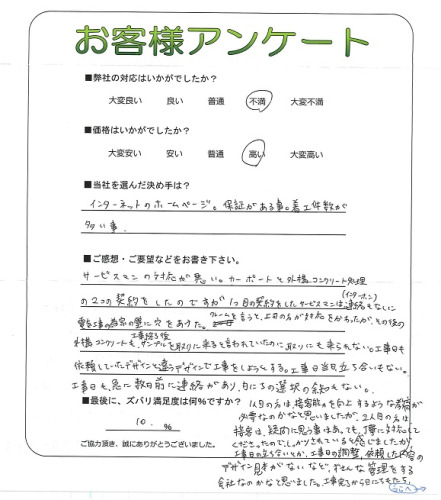 お客様アンケート
■弊社の対応はいかがでしたか?
大変良い 良い 普通 不満 大変不満
■価格はいかがでしたか?
大変安い 安い 普通 高い 大変高い
■当社を選んだ決め手は?
インターネットのホームページ。保証がある事。着工件数が
多い事。
■ご感想・ご要望などをお書き下さい。
サービスマンの対応が悪い。カーポートと外構コンクリート処理
の2つの契約をしたのですが1つ目の契約をしたサービスマンは連絡もなしに
(インターホン)
電気工事の為家の壁に穴をあけた。クレームを言うと、上司の方が対応をかわったが、その後の
工事終了後
外構コンクリートも、サンプルを取りに来ると言われていたのに取りにも来られない。工事日も
依頼していたデザインと違うデザインで工事をしようとする。工事日当日立ち合いもない。
工事日も、急に数日前に連絡があり、日にちの選択の余地もない。
■最後に、ズバリ満足度は何%ですか?
10.%
ご協力頂き、誠にありがとうございました。
1人目の方は、接客能力を向上するような教育が
必要なのかなと思いましたが、2人目の方は、
接客は、疑問に思う事はあっても、丁寧に対応して
くださったのでしっかりされていると感じましたが
工事日の立ち合いとか、工事日の調整、依頼した内容の
デザイン見本がないなど、ずさんな管理をする
会社なのかなと思いました。工事完了から日にちもたち、